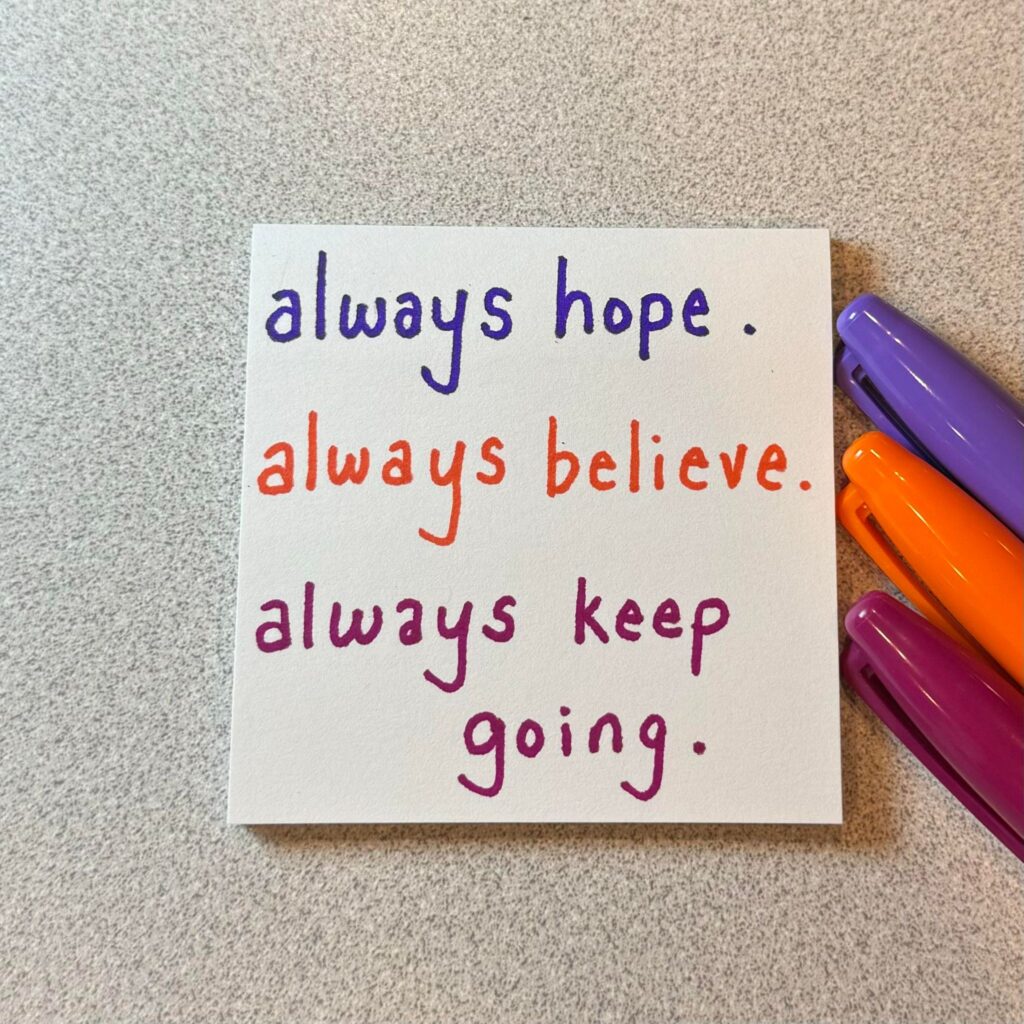 always hope.
always believe.
always keep
going.